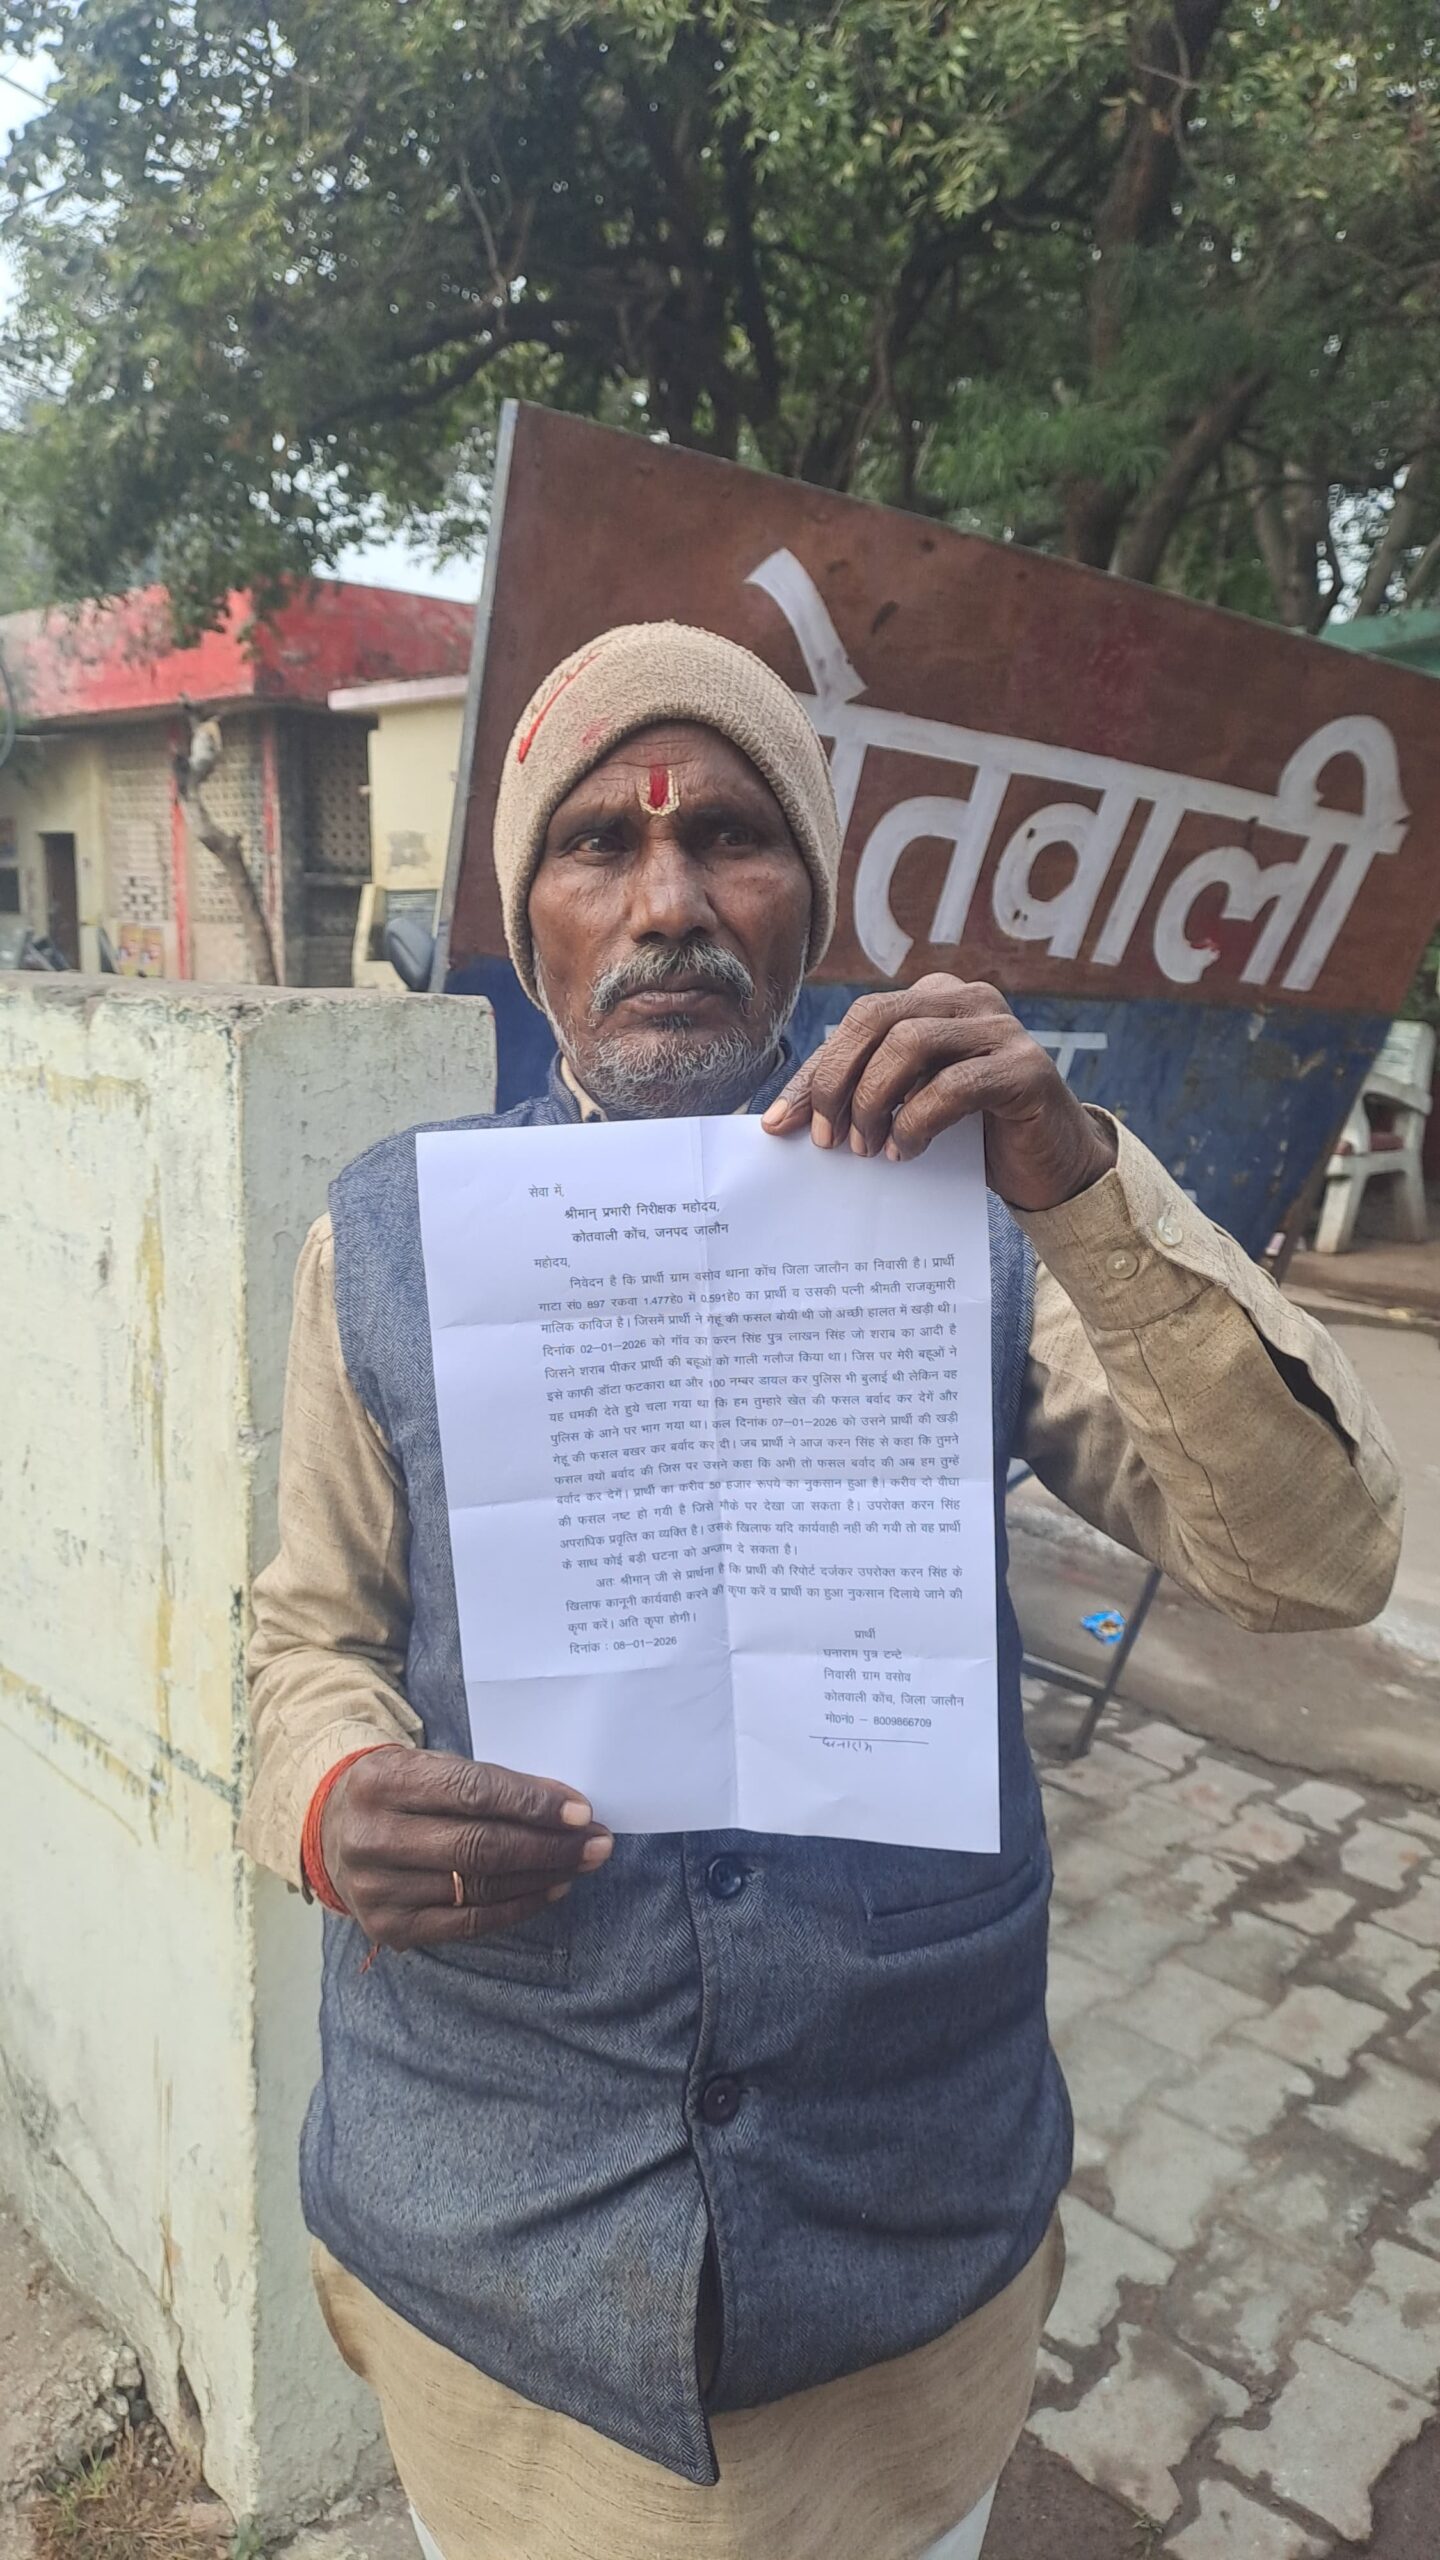 कोतवाली
सेवा में,
श्रीमान् प्रभारी निरीक्षक महोदय,
कोतवाली कोंच, जनपद जालौन
महोदय,
निवेदन है कि प्रार्थी ग्राम वसोव थाना कोंच जिला जालौन का निवासी है। प्रार्थी
गाटा सं0 897 रकवा 1.477हे0 में 0.591हे0 का प्रार्थी व उसकी पत्नी श्रीमती राजकुमारी
मालिक काविज है। जिसमें प्रार्थी ने गेहूं की फसल बोयी थी जो अच्छी हालत में खड़ी थी।
दिनांक 02-01-2026 को गॉव का करन सिंह पुत्र लाखन सिंह जो शराब का आदी है
जिसने शराब पीकर प्रार्थी की बहूओं को गाली गलौज किया था। जिस पर मेरी बहूओं ने
इसे काफी डॉटा फटकारा था और 100 नम्बर डायल कर पुलिस भी बुलाई थी लेकिन वह
यह धमकी देते हुये चला गया था कि हम तुम्हारे खेत की फसल बर्वाद कर देगें और
पुलिस के आने पर भाग गया था। कल दिनांक 07-01-2026 को उसने प्रार्थी की खडी
गेहूं की फसल बखर कर बर्वाद कर दी। जब प्रार्थी ने आज करन सिंह से कहा कि तुमने
फसल क्यों बर्वाद की जिस पर उसने कहा कि अभी तो फसल बर्वाद की अब हम तुम्हें
बर्वाद कर देगें। प्रार्थी का करीव 50 हजार रूपये का नुकसान हुआ है। करीव दो वीघा
की फसल नष्ट हो गयी है जिसे मौके पर देखा जा सकता है। उपरोक्त करन सिंह
अपराधिक प्रवृत्ति का व्यक्ति है। उसके खिलाफ यदि कार्यवाही नही की गयी तो वह प्रार्थी
के साथ कोई बड़ी घटना को अन्जाम दे सकता है।
अतः श्रीमान् जी से प्रार्थना है कि प्रार्थी की रिपोर्ट दर्जकर उपरोक्त करन सिंह के
खिलाफ कानूनी कार्यवाही करने की कृपा करें व प्रार्थी का हुआ नुकसान दिलाये जाने की
कृपा करें। अति कृपा होगी।
दिनांक : 08-01-2026
प्रार्थी
घनाराम पुत्र टन्टे
निवासी ग्राम वसोव
कोतवाली कोंच, जिला जालौन
मो0नं0 - 8009866709
घनाराम